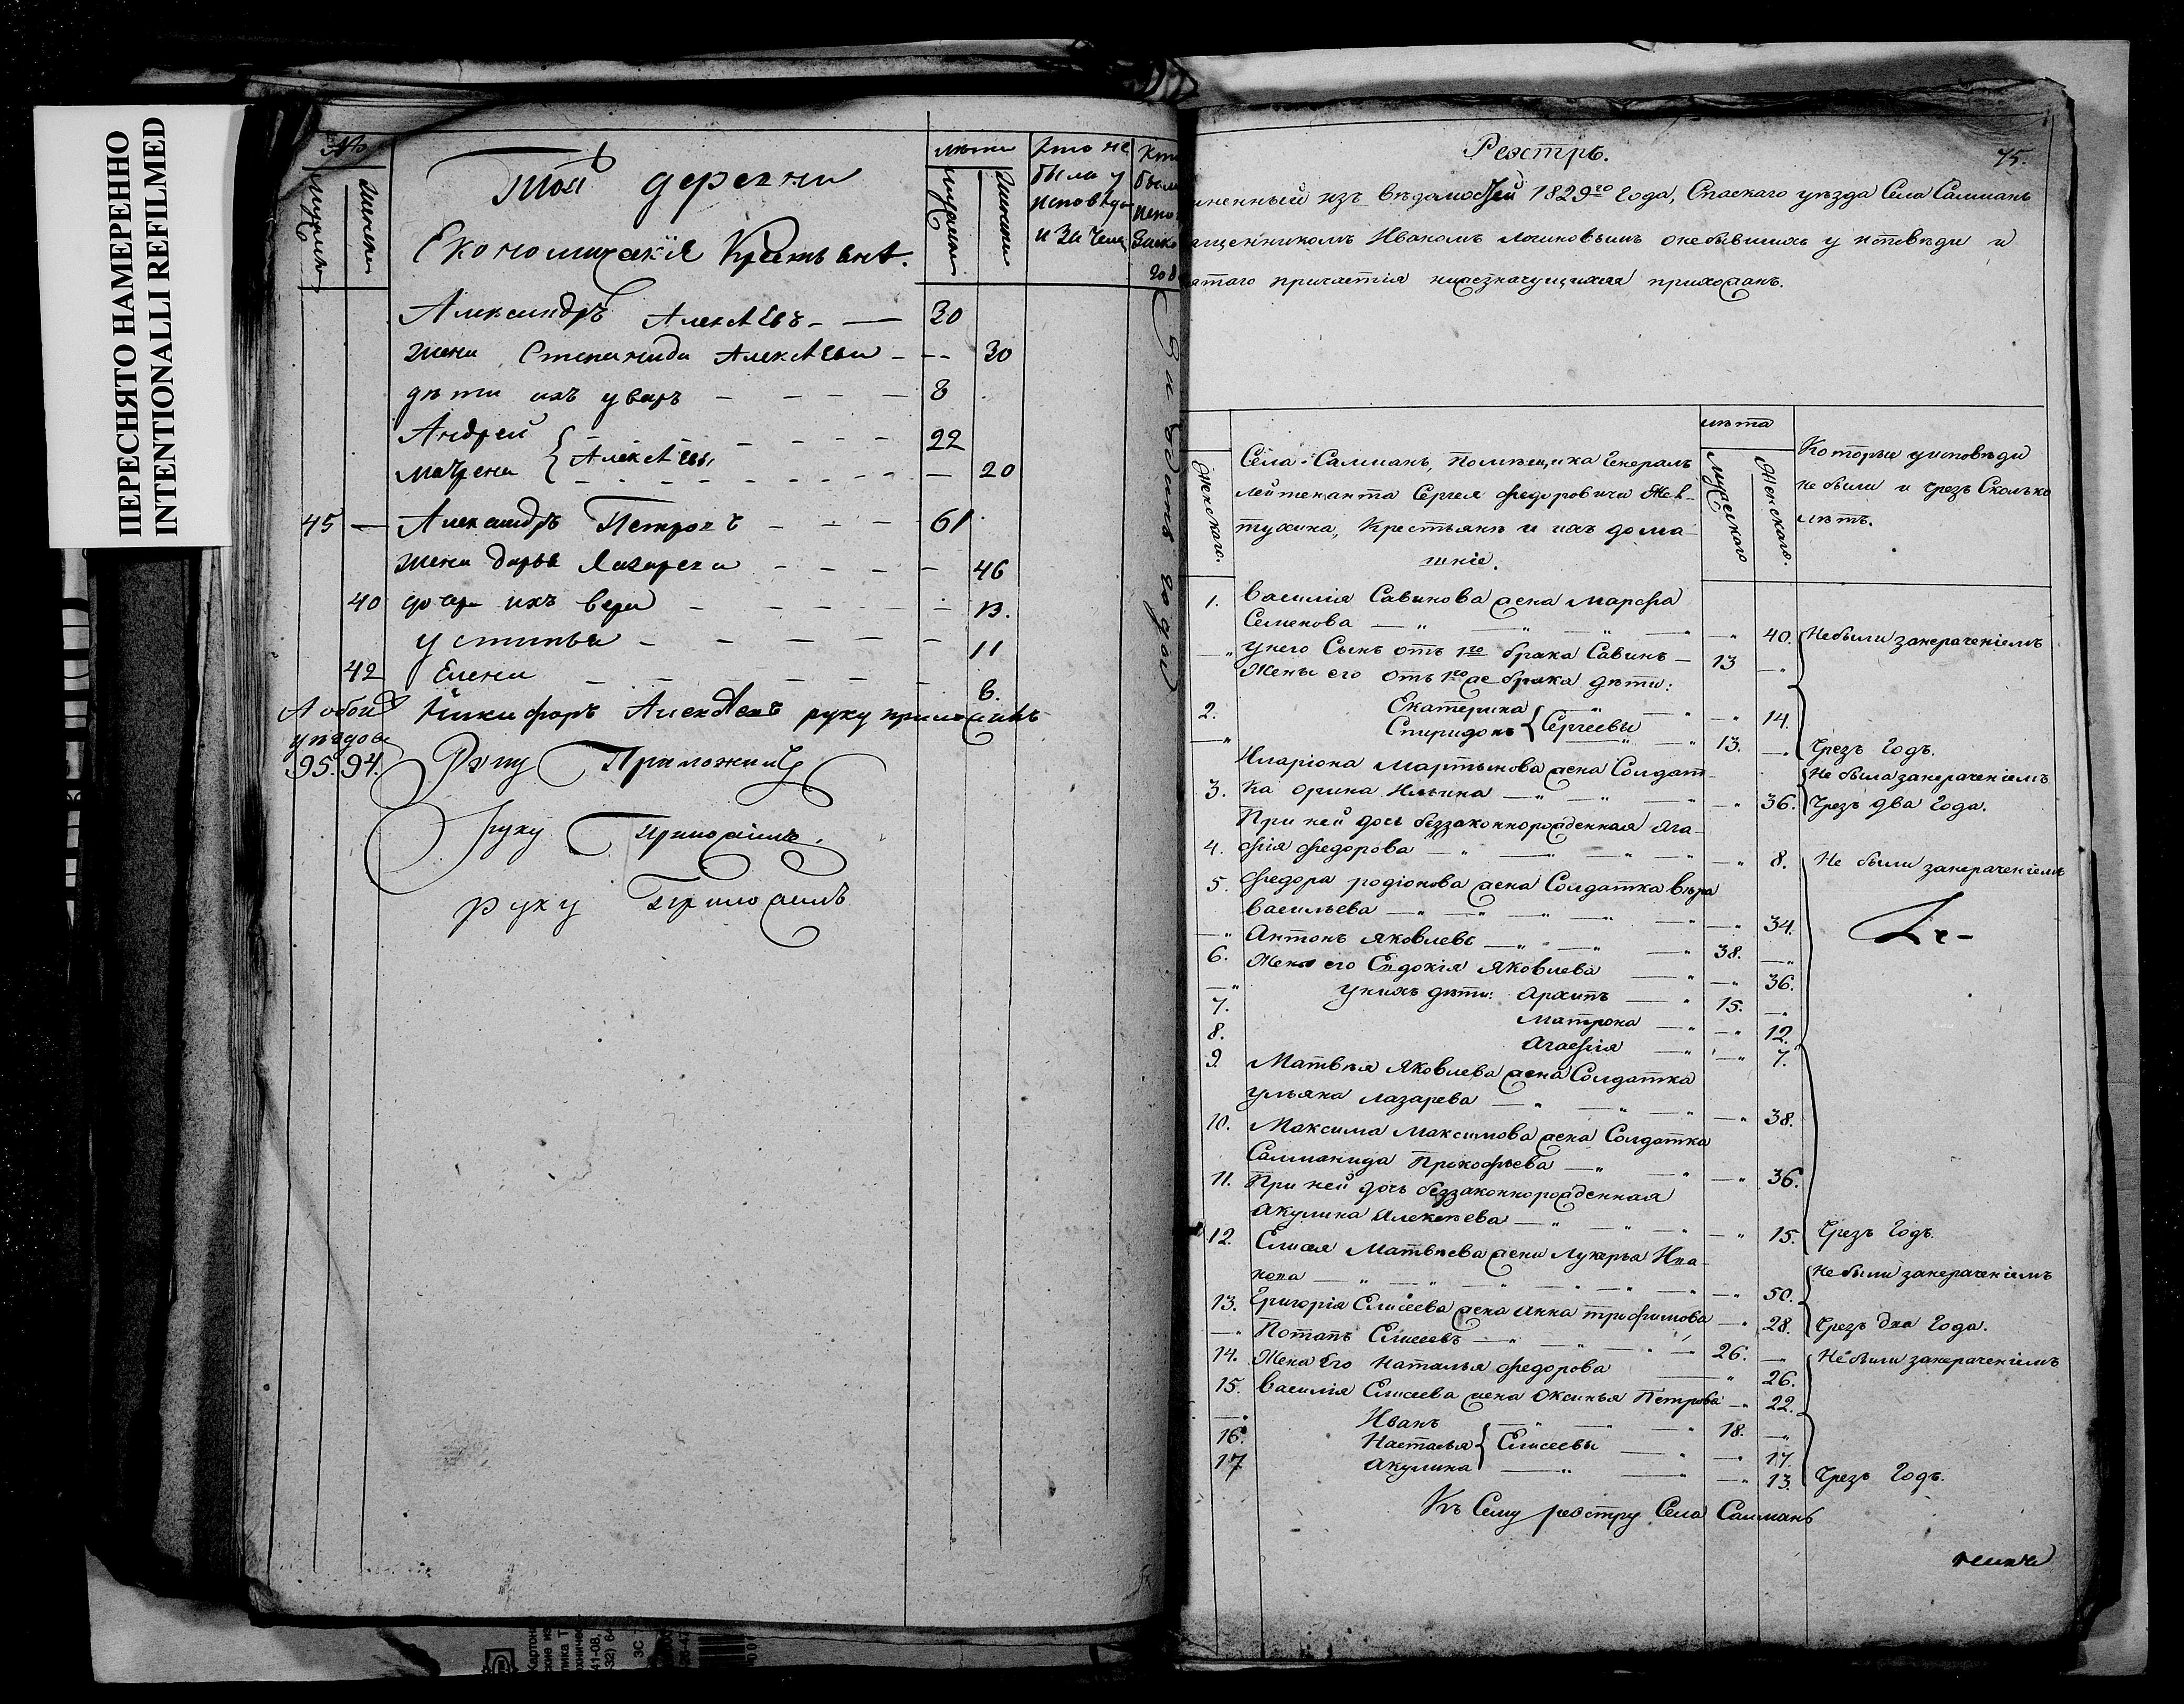 ПЕРЕСНЯТО НАМЕРЕННО
INTENTIONALLI REFILMED
№
мужескъ
женски
Той деревни
Економическія Крестьяне.
лѣта
мужески
женски
Кто не
былъ у
исповѣди
и За чемъ
Александръ Алексѣевъ — 30
жена Степанида Алексѣева — 30
дѣти ихъ уваръ — 8
Андрей — 22
Алексѣевы
матрена — 20
45 — Александръ Петровъ — 61
жена дарья Лазарева — 46
40 дочери ихъ вера — 13.
устинья — 11
42 Елена — 8.
Никифоръ Алексѣевъ руку приложилъ
95. 94.
Руку Приложилъ
руку приложилъ.
руку Приложилъ
За единъ годъ
Реэстръ.
75.
иненный изъ вѣдомостей 1829го Года, Спаскаго уѣзда Села Салманъ
ященникомъ Иваномъ Логиновымъ онебывшихъ у исповѣди и
ятаго причастія нижезначущихся прихожанъ.
Женскаго.
Села Салманъ, Помѣщика Генералъ
лейтенанта Сергея Федоровича Жел-
тухина, Крестьянѣ и ихъ дома-
шніе.
лѣта
Мужескаго
Женскаго.
Которые уисповѣди
не были и чрезъ Сколько
лѣтъ.
1. Василія Савинова жена Марфа
Семенова — 40. Небыли занерачениемъ
У него Сынъ отъ 1го брака Савинъ — 13
Жены его отъ 1го же брака дѣти:
2. Екатерина — 14.
Сергеевы
Спиридонъ — 13. Чрезъ Годъ.
Иларіона Мартынова жена Солдат-
Не была занерачениемъ
3. ка Орина Ильина — 36. Чрезъ два Года.
При ней дочь беззаконнорожденная Ага-
4. фія Федорова — 8. Не были занерачениемъ
5. Федора родіонова жена Солдатка Вѣра
Васильева — 34.
Антонъ Яковлевъ — 38.
6. Жена его Евдокія Яковлева — 36.
У нихъ дѣти: Архипъ — 15.
7. Матрона — 12.
8. Агафія — 7.
9. Матвѣя Яковлева жена Солдатка
Ульяна Лазарева — 38.
10. Максима Максимова жена Солдатка
Саламанида Прокофьева — 36.
11. При ней дочь беззаконнорожденная
Акулина Алексѣева — 15. Чрезъ Годъ.
12. Елисея Матвѣева жена Лукерья Ива-
Не были занерачениемъ
нова — 50.
13. Григорія Елисеева жена Анна трофимова — 28. Чрезъ два Года.
Потапъ Елисеевъ — 26.
Не были занерачениемъ
14. Жена Его Наталья Федорова — 26.
15. Василія Елисеева жена Оксинья Петрова — 22.
Иванъ — 18.
16. Насталья Елисеевы — 17.
17. Акулина — 13. Чрезъ Годъ.
Къ Сему реэстру Села Салманъ